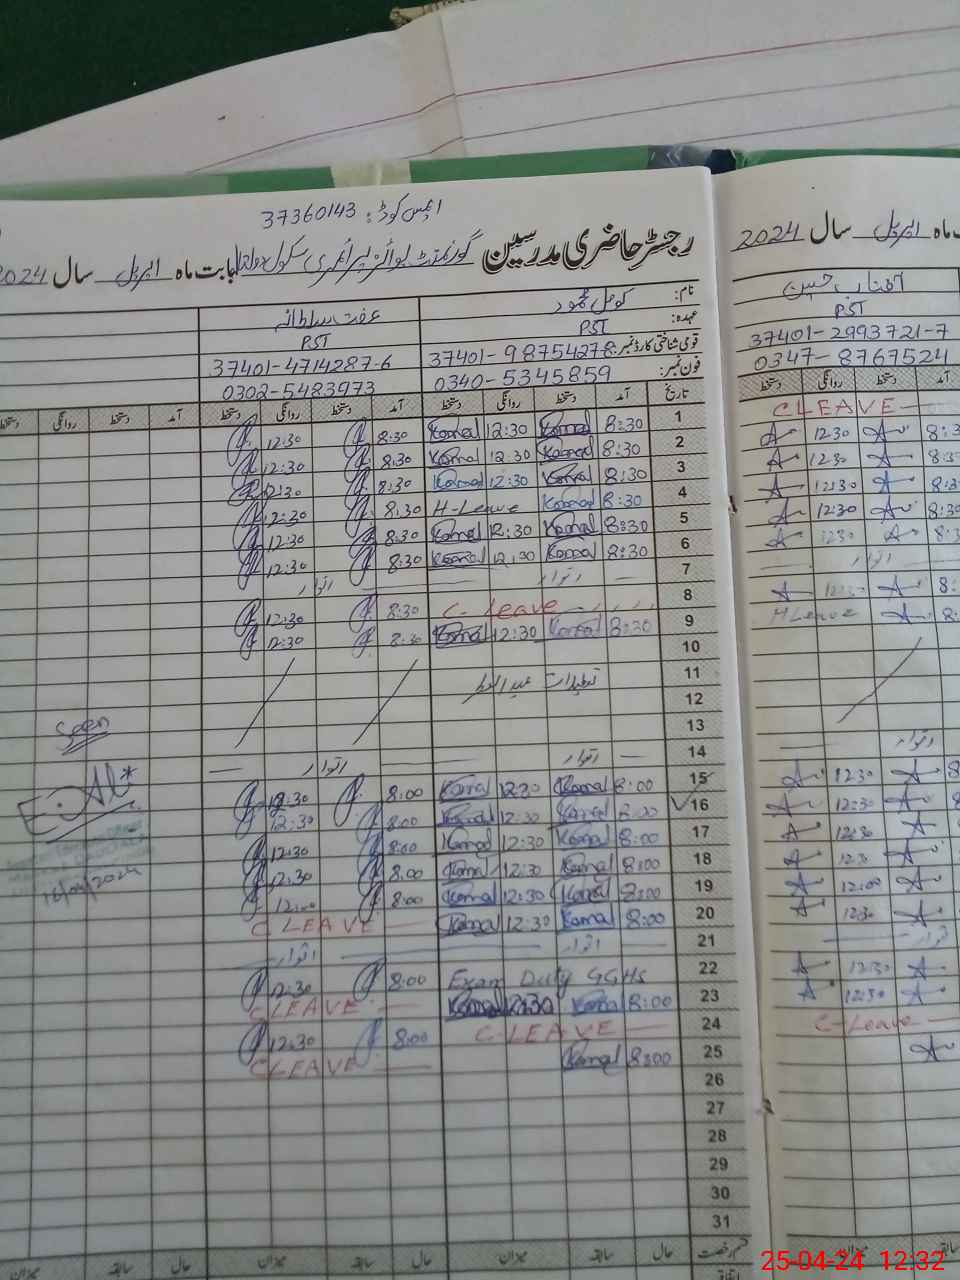 ایمس کوڈ: 37360143
رجسٹر حاضری مدرسین گورنمنٹ بوائز پرائمری سکول بابت ماہ اپریل سال 2024
ماہ اپریل سال 2024
نام: کومل محمود
عفت سلطانہ
آفتاب حسین
عہدہ: PST
PST
PST
قومی شناختی کارڈ نمبر: 37401-98754278
37401-4714287-6
37401-2993721-7
فون نمبر: 0340-5345859
0302-5483973
0347-8767524
تاریخ آمد دستخط روانگی دستخط آمد دستخط روانگی دستخط آمد دستخط روانگی دستخط
1 8:30 Komal 12:30 Komal 8:30 12:30 C LEAVE
2 8:30 Komal 12:30 Komal 8:30 12:30 12:30
3 8:30 Komal 12:30 Komal 8:30 12:30 12:30
4 8:30 Komal H-Leave 8:30 12:30 12:30
5 8:30 Komal 12:30 Komal 8:30 12:30 12:30
6 8:30 Komal 12:30 Komal 8:30 12:30 12:30
7 اتوار اتوار اتوار
8 C-Leave 8:30 12:30 12:30
9 8:30 Komal 12:30 Komal 8:30 12:30 H Leave
10
11 تعطیلات عید الفطر
12
13
14 اتوار اتوار اتوار
15 8:00 Komal 12:30 Komal 8:00 12:30 12:30
16 8:00 Komal 12:30 Komal 8:00 12:30 12:30
17 8:00 Komal 12:30 Komal 8:00 12:30 12:30
18 8:00 Komal 12:30 Komal 8:00 12:30 12:30
19 8:00 Komal 12:30 Komal 8:00 12:00 12:00
20 8:00 Komal 12:30 Komal C LEAVE 12:30
21 اتوار اتوار اتوار
22 Exam Duty GGHS 8:00 12:30 12:30
23 8:00 Komal 12:30 Komal C LEAVE 12:30
24 C-LEAVE 8:00 12:30 C-Leave
25 8:00 Komal C LEAVE
26
27
28
29
30
31
Seen
16/04/2024
قسم رخصت حال سابقہ میزان حال سابقہ میزان حال سابقہ میزان
25-04-24 12:32